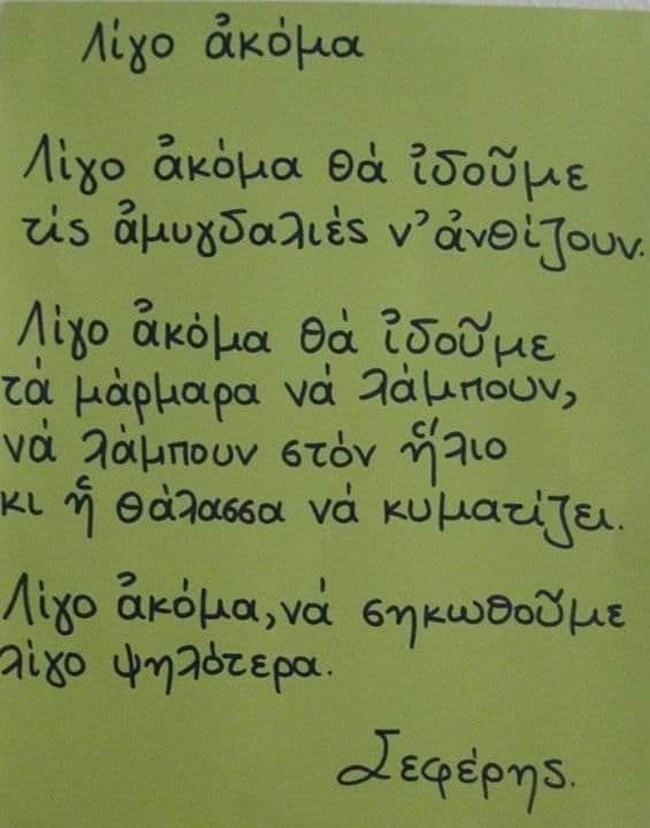 Λίγο ἀκόμα
Λίγο ἀκόμα θά ἰδοῦμε
τίς ἀμυγδαλιές ν' ἀνθίζουν.
Λίγο ἀκόμα θά ἰδοῦμε
τά μάρμαρα νά λάμπουν,
νά λάμπουν στόν ἥλιο
κι ἡ θάλασσα νά κυματίζει.
Λίγο ἀκόμα, νά σηκωθοῦμε
λίγο ψηλότερα.
Σεφέρης.